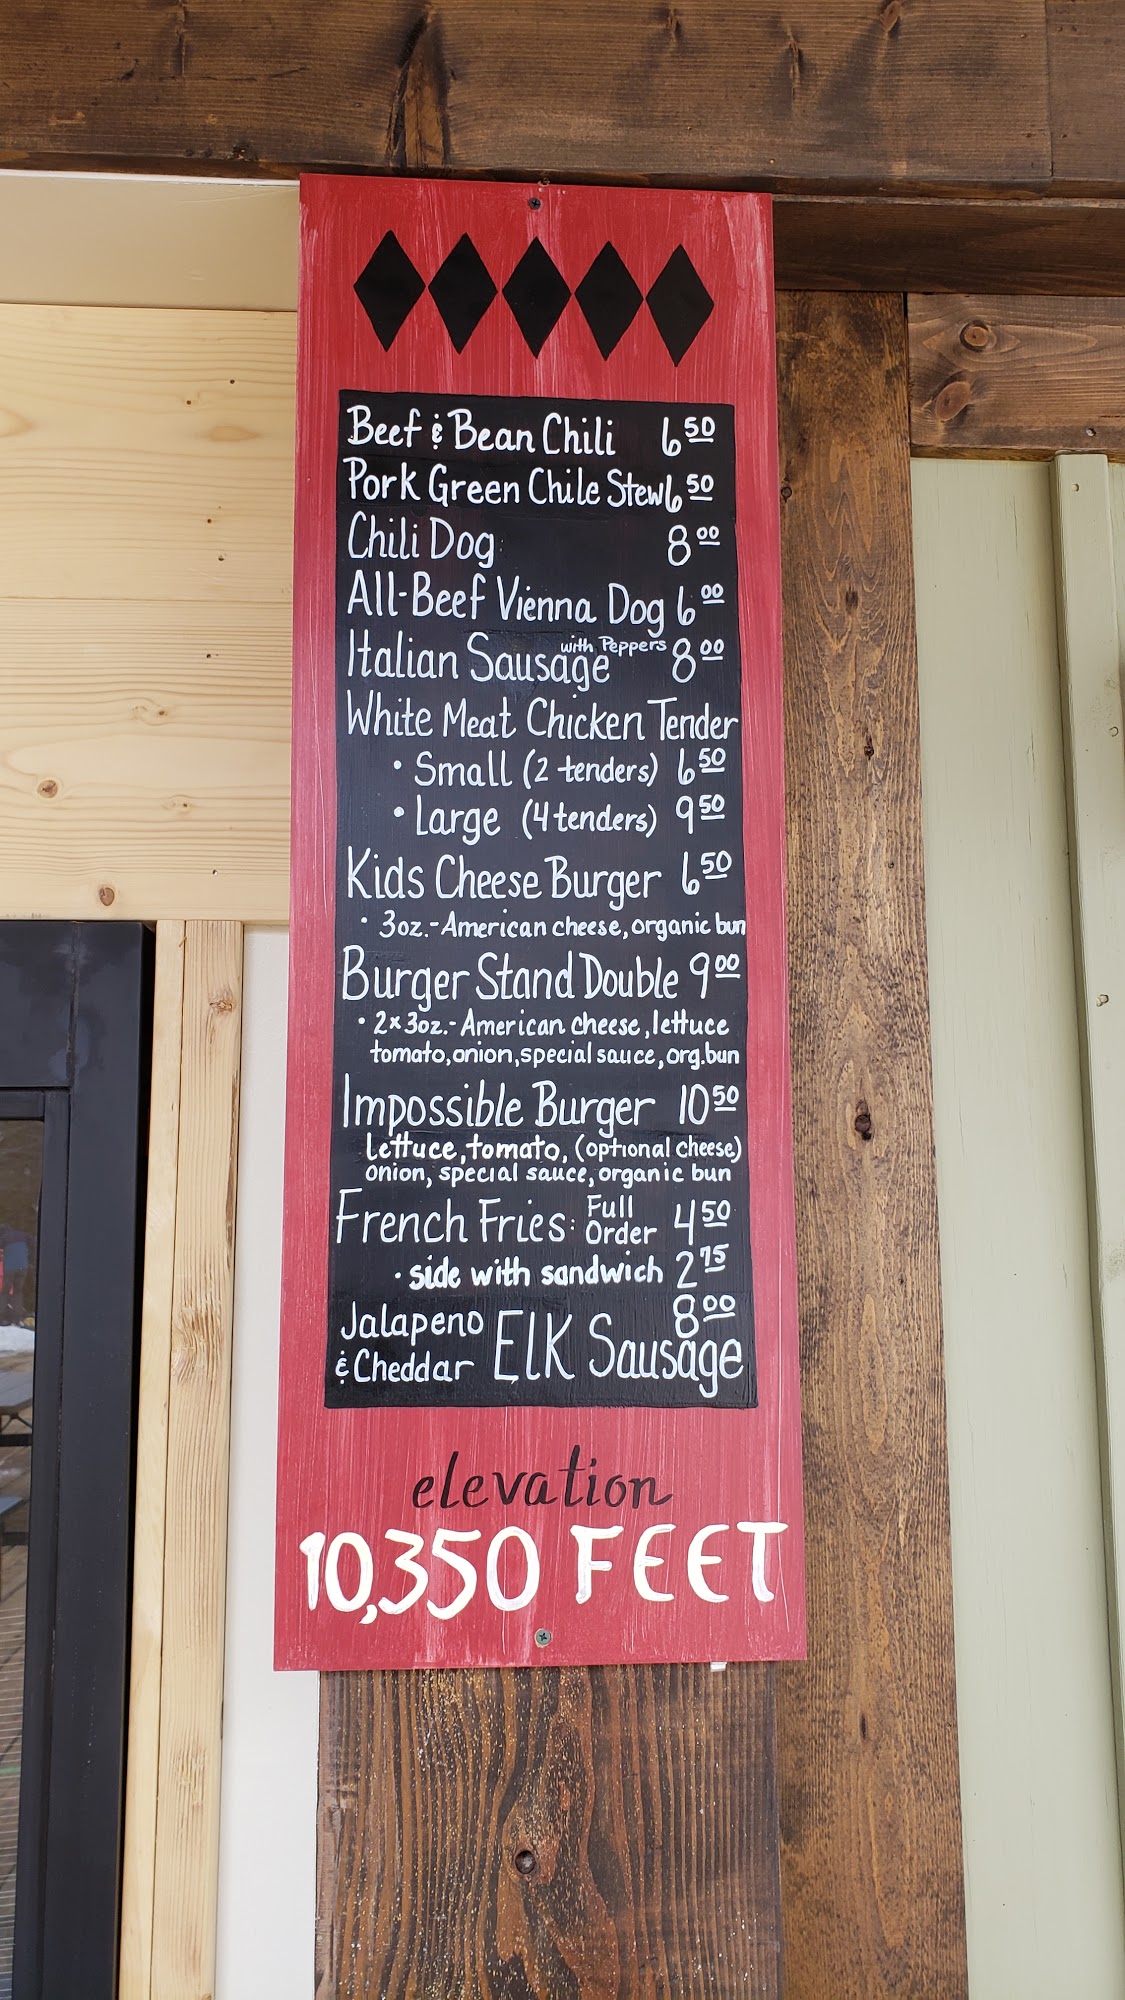 Beef & Bean Chili 6 50
Pork Green Chile Stew 6 50
Chili Dog 8 00
All-Beef Vienna Dog 6 00
Italian Sausage with Peppers 8 00
White Meat Chicken Tender
• Small (2 tenders) 6 50
• Large (4 tenders) 9 50
Kids Cheese Burger 6 50
• 3oz.-American cheese, organic bun
Burger Stand Double 9 00
• 2x3oz.-American cheese, lettuce
tomato, onion, special sauce, org. bun
Impossible Burger 10 50
lettuce, tomato, (optional cheese)
onion, special sauce, organic bun
French Fries: Full Order 4 50
• side with sandwich 2 75
Jalapeno & Cheddar ELK Sausage 8 00
elevation
10,350 FEET